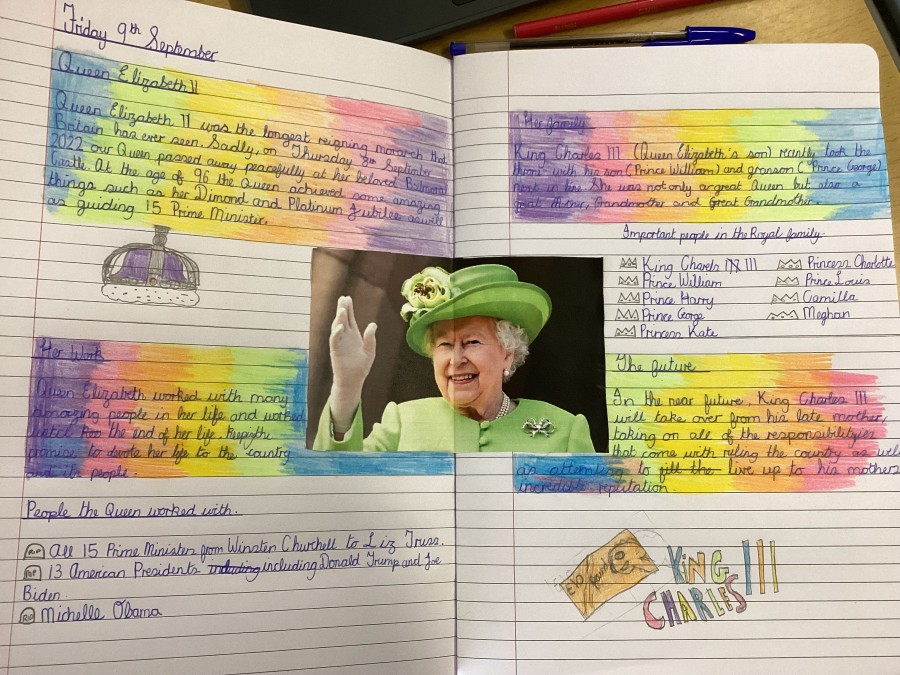 Friday 9th September
Queen Elizabeth II
Queen Elizabeth II was the longest reigning monarch that
Britain has ever seen. Sadly, on Thursday 8th September
2022 our Queen passed away peacefully at her beloved Balmoral
Castle. At the age of 96 the Queen achieved some amazing
things such as her Dimond and Platinum Jubilee aswell
as guiding 15 Prime Minister.
Her Work
Queen Elizabeth worked with many
amazing people in her life and worked
until the end of her life. Keeping the
promise to devote her life to the country
and its people.
People the Queen worked with.
RIP All 15 Prime Ministers from Winsten Churchell to Liz Truss.
RIP 13 American Presidents including including Donald Trump and Joe
Biden
RIP Michelle Obama
Her family
King Charles III (Queen Elizabeth's son) recently took the
throne with his son (Prince William) and granson (Prince George)
next in line. She was not only a great Queen but also a
great Mother, Grandmother and Great Grandmother.
Important people in the Royal family
King Charels III
Prince William
Prince Harry
Prince Gorge
Princess Kate
Princess Charlotte
Prince Louis
Camilla
Meghan
The future
In the near future, King Charles III
will take over from his late mother,
taking on all of the responsibilityies
that come with ruling the country as well
as attempting to fill the live up to his mothers
incredible reputation.
KING
CHARLES III